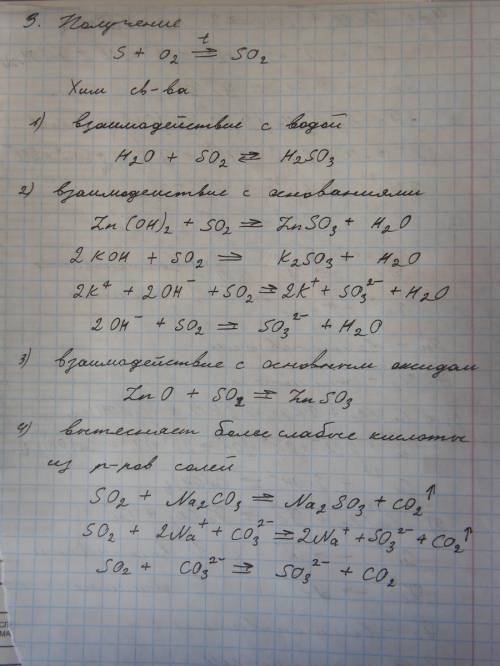 3. Получение
S + O₂ =t=> SO₂
Хим св-ва
1) взаимодействие с водой
H₂O + SO₂ ⇄ H₂SO₃
2) взаимодействие с основаниями
Zn(OH)₂ + SO₂ => ZnSO₃ + H₂O
2KOH + SO₂ => K₂SO₃ + H₂O
2K⁺ + 2OH⁻ + SO₂ => 2K⁺ + SO₃²⁻ + H₂O
2OH⁻ + SO₂ => SO₃²⁻ + H₂O
3) взаимодействие с основным оксидом
ZnO + SO₂ => ZnSO₃
4) вытесняет более слабые кислоты
из р-ров солей
SO₂ + Na₂CO₃ => Na₂SO₃ + CO₂↑
SO₂ + 2Na⁺ + CO₃²⁻ => 2Na⁺ + SO₃²⁻ + CO₂↑
SO₂ + CO₃²⁻ => SO₃²⁻ + CO₂